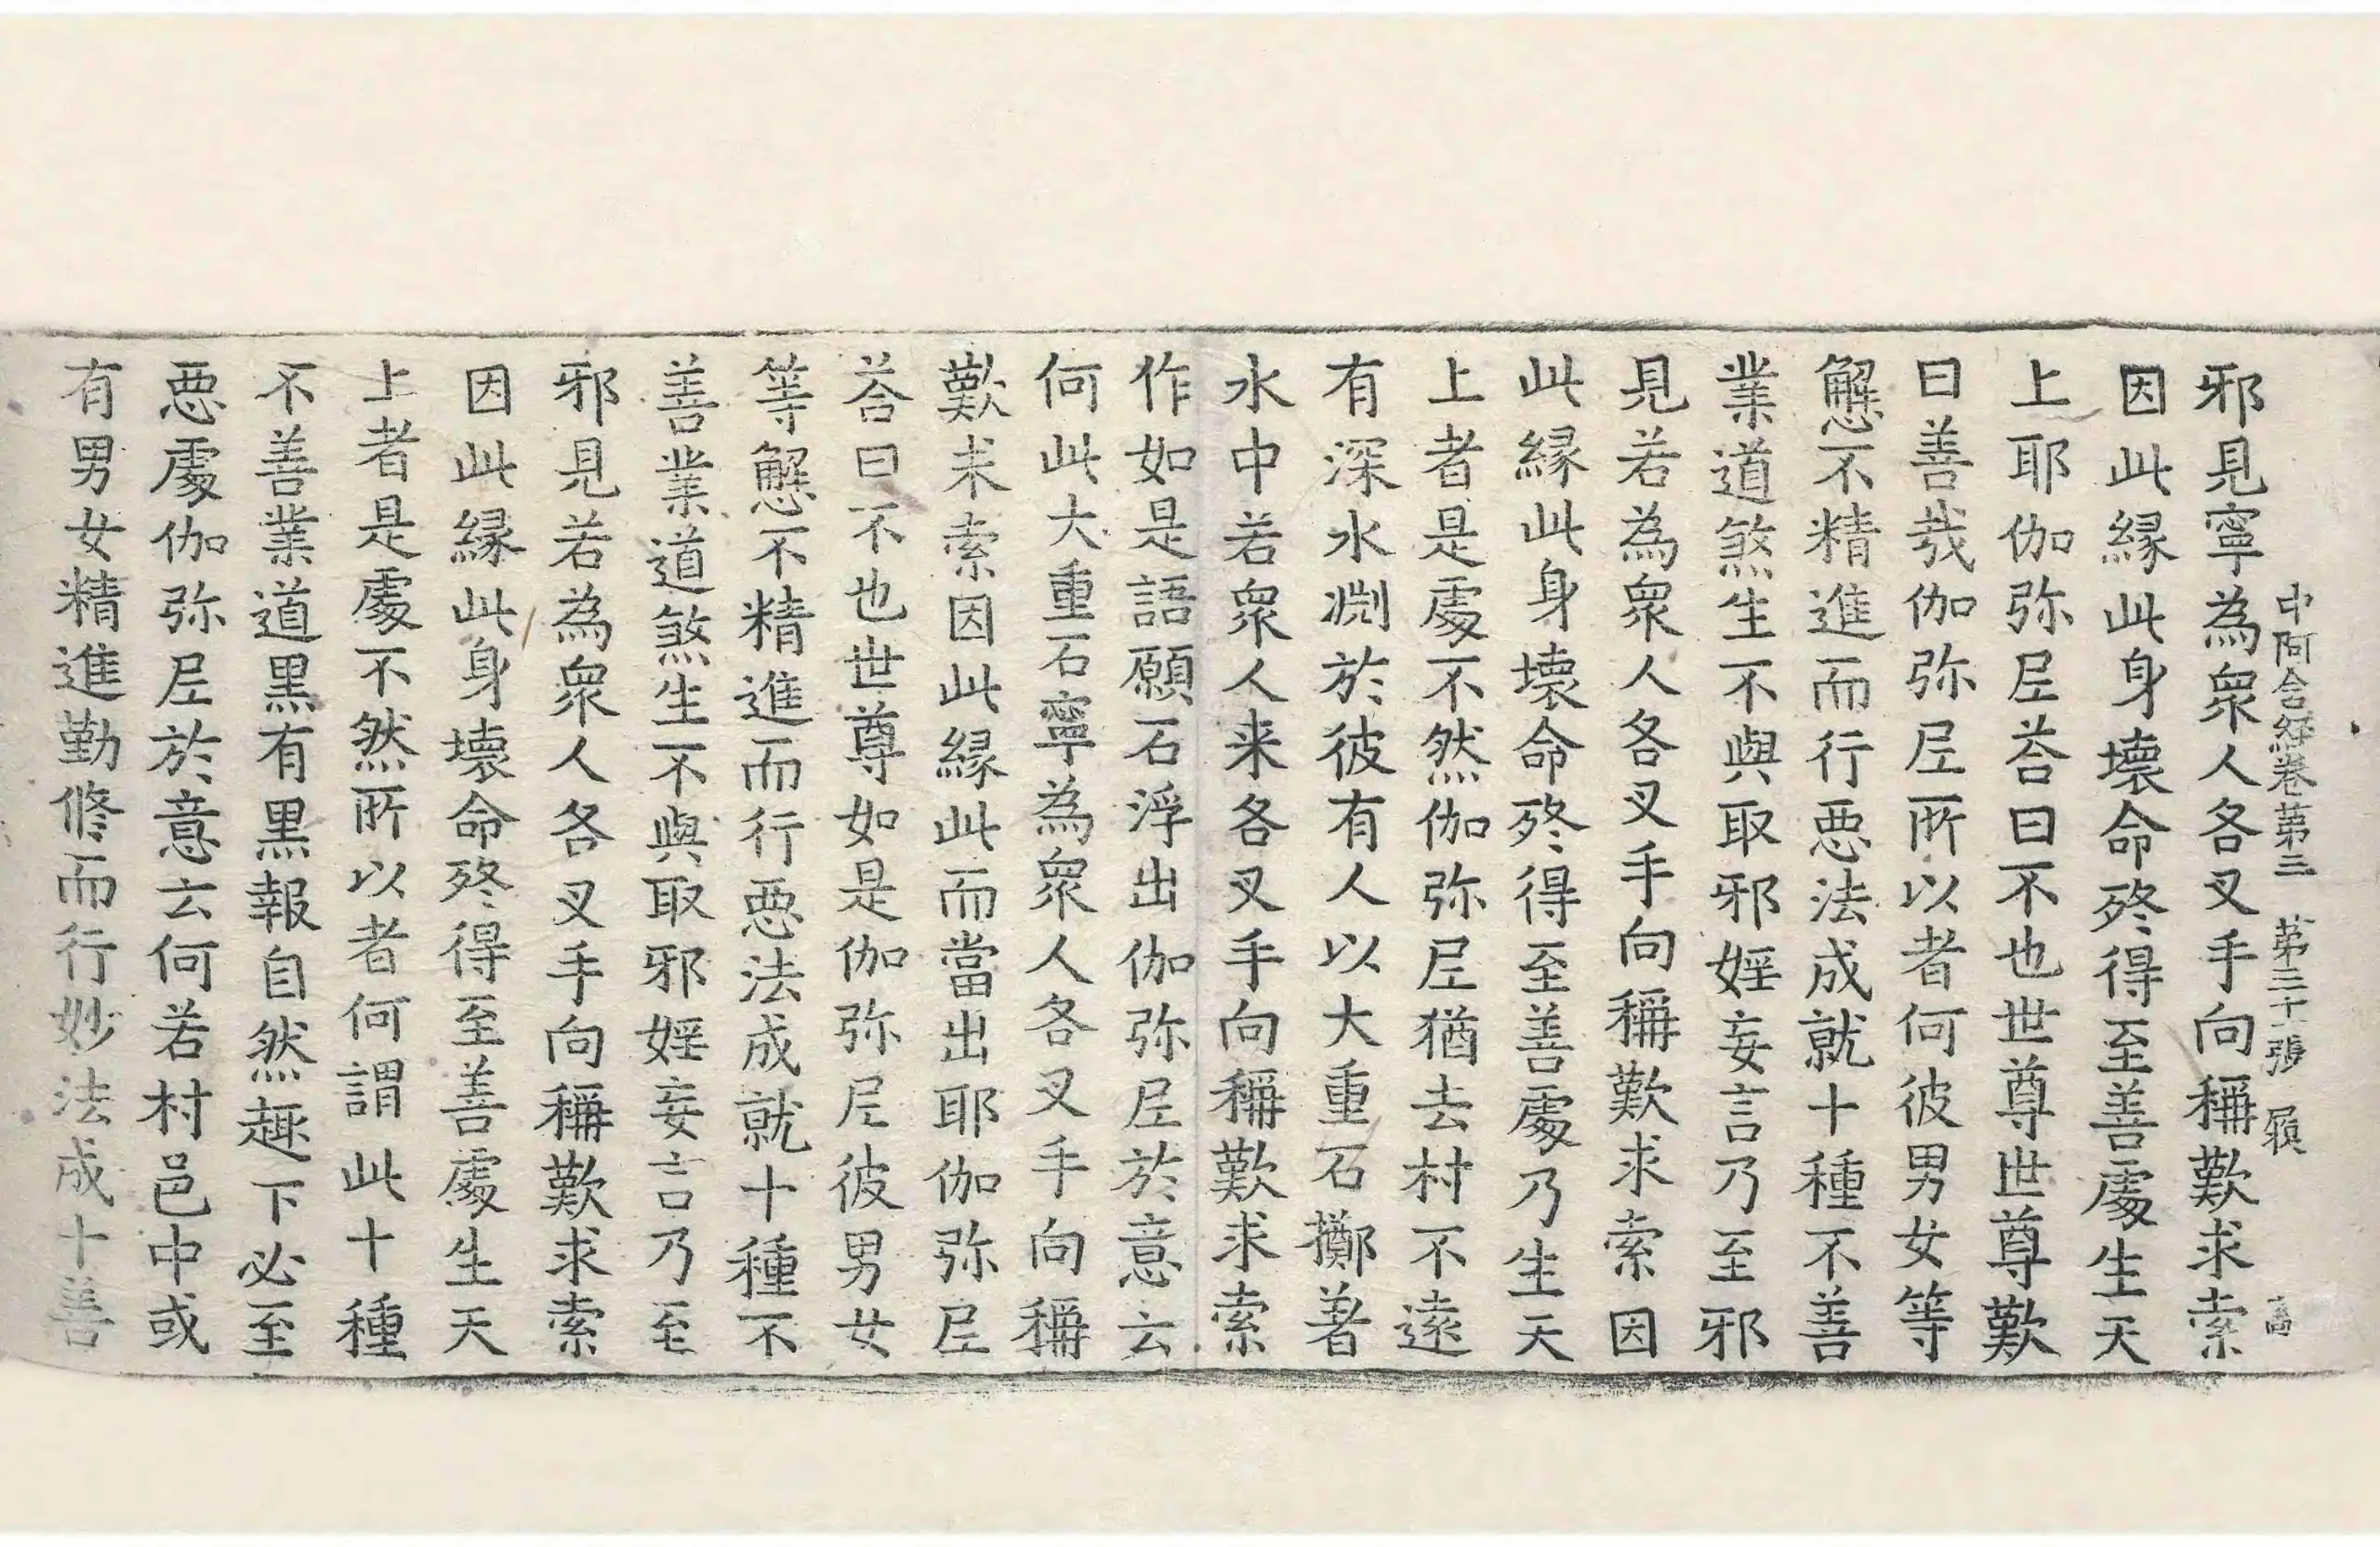 中阿含經卷第三　第三十一張　
邪見寧為衆人各叉手向稱歎求索
因此縁此身壞命終得至善處生天
上耶伽弥尼荅曰不也世尊世尊歎
曰善哉伽弥尼所以者何彼男女等
懈不精進而行惡法成就十種不善
業道煞生不與取邪婬妄言乃至邪
見若為衆人各叉手向稱歎求索因
此縁此身壞命終得至善處乃生天
上者是處不然伽弥尼猶去村不遠
有深水渕於彼有人以大重石擲著
水中若衆人来各叉手向稱歎求索
作如是語願石浮出伽弥尼於意云
何此大重石寧為衆人各叉手向稱
歎求索因此縁此而當出耶伽弥尼
荅曰不也世尊如是伽弥尼彼男女
等懈不精進而行惡法成就十種不
善業道煞生不與取邪婬妄言乃至
邪見若為衆人各叉手向稱歎求索
因此縁此身壞命終得至善處生天
上者是處不然所以者何謂此十種
不善業道黒有黒報自然趣下必至
惡處伽弥尼於意云何若村邑中或
有男女精進勤修而行妙法成十善